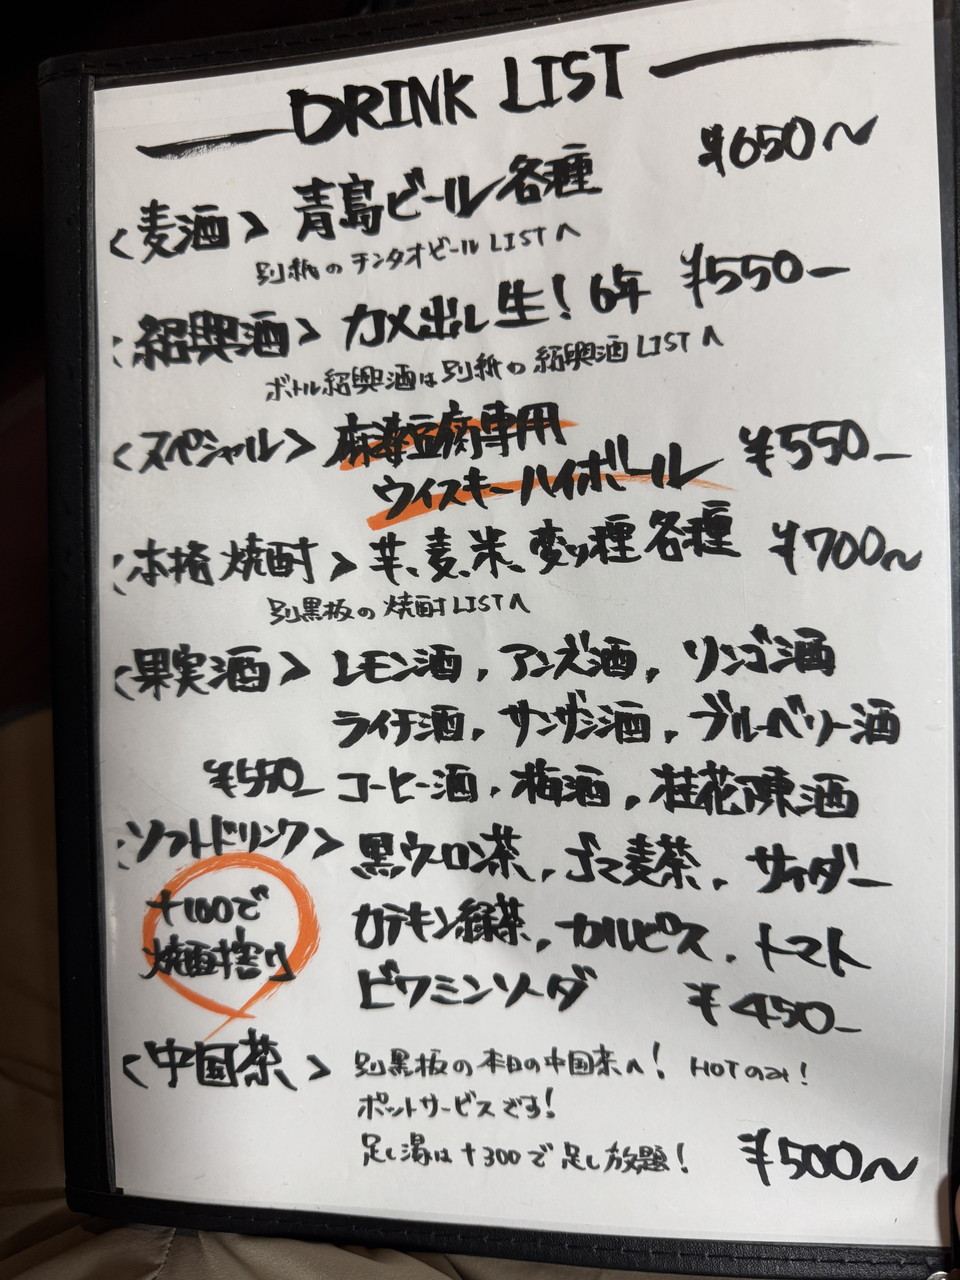 DRINK LIST
<麦酒> 青島ビール各種 ¥650〜
別紙のチンタオビールLISTへ
<紹興酒> カメ出し生!6年 ¥550-
ボトル紹興酒は別紙の紹興酒LISTへ
<スペシャル> 麻婆豆腐専用
ウイスキーハイボール ¥550-
<本格焼酎> 芋、麦、米、変り種各種 ¥700〜
別黒板の焼酎LISTへ
<果実酒> レモン酒, アンズ酒, リンゴ酒
ライチ酒, サンザシ酒, ブルーベリー酒
¥550- コーヒー酒, 梅酒, 桂花陳酒
<ソフトドリンク> 黒ウーロン茶, ゴマ麦茶, サイダー
+100で
焼酎割り
カテキン緑茶, カルピス, トマト
ビタミンソーダ ¥450-
<中国茶> 別黒板の本日の中国茶へ! HOTのみ!
ポットサービスです!
足し湯は+300で足し放題! ¥500〜